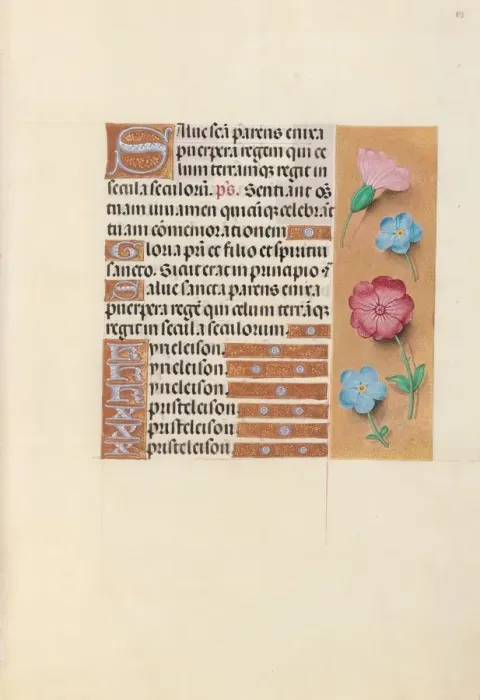 Salue scã parens enixa
puerpera regem qui ce
lum terramqꝫ regit in
secula seculorũ. ps̃. Sentiant oẽs
tuum iuuamen quicũqꝫ celebrãt
tuam cõmemorationem
Gloria pr̃i et filio et spiritui
sancto. Sicut erat in principio ⁊
Salue sancta parens enixa
puerpera regẽ qui celum terrãqꝫ
regit in secula seculorum.
Kyrieleison.
Kyrieleison.
Kyrieleison.
Xpristeleison.
Xpristeleison
Xpristeleison.